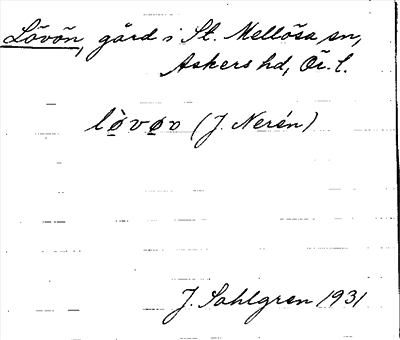 Lövön, gård i St. Mellösa sn,
Askers hd, Ör. l.
lø̀vøv (J. Nerén)
J. Sahlgren 1931